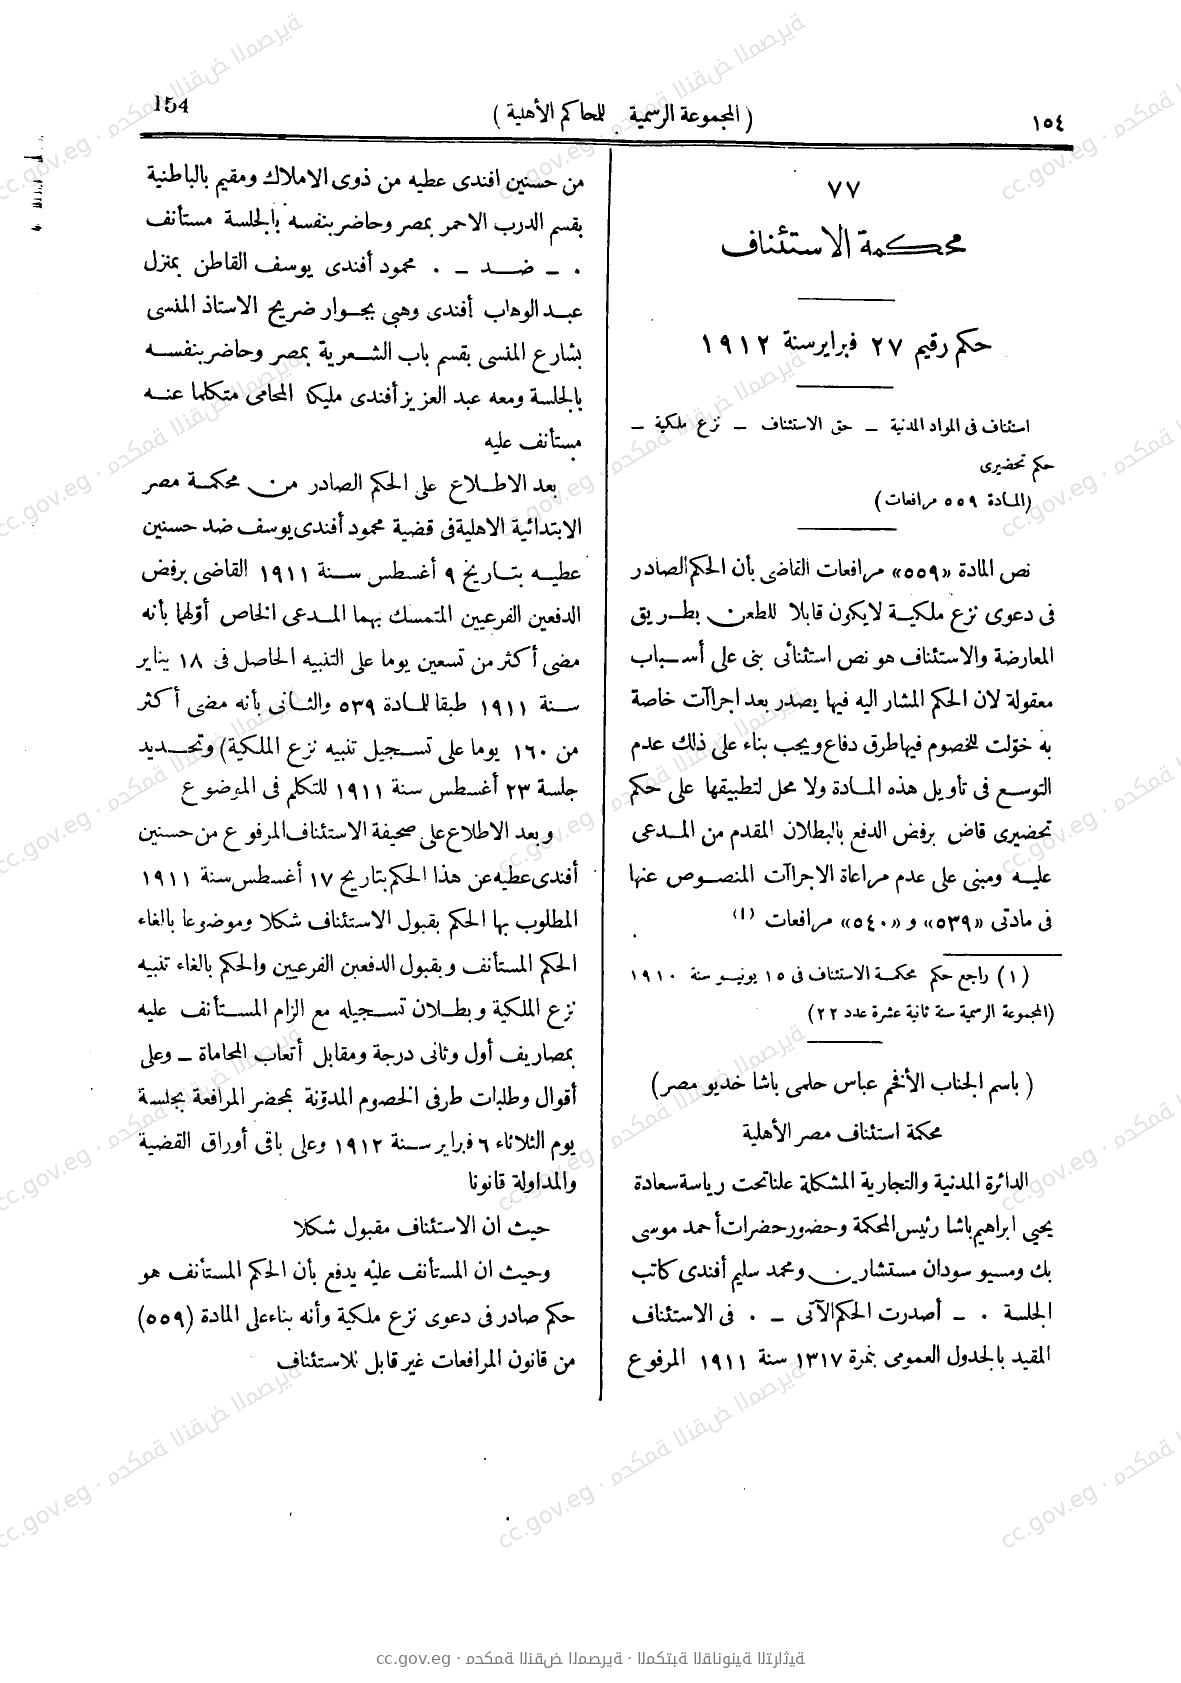 ١٥٤ ( المجموعة الرسمية للمحاكم الأهلية ) 154
٧٧
محكمة الاستئناف
حكم رقيم ٢٧ فبراير سنة ١٩١٢
استئناف فى المواد المدنية – حق الاستئناف – نزع ملكية –
حكم تحضيرى
(المادة ٥٥٩ مرافعات)
نص المادة «٥٥٩» مرافعات القاضى بأن الحكم الصادر
فى دعوى نزع ملكية لا يكون قابلا للطعن بطريق
المعارضة والاستئناف هو نص استثنائى بنى على أسباب
معقولة لان الحكم المشار اليه فيها يصدر بعد اجراآت خاصة
به خوّلت للخصوم فيها طرق دفاع ويجب بناء على ذلك عدم
التوسع فى تأويل هذه المادة ولا محل لتطبيقها على حكم
تحضيرى قاض برفض الدفع بالبطلان المقدم من المدعى
عليه ومبنى على عدم مراعاة الاجراآت المنصوص عنها
فى مادتى «٥٣٩» و «٥٤٠» مرافعات (١)
(١) راجع حكم محكمة الاستئناف فى ١٥ يونيو سنة ١٩١٠
(المجموعة الرسمية سنة ثانية عشرة عدد ٢٢)
( باسم الجناب الأفخم عباس حلمى باشا خديو مصر)
محكمة استئناف مصر الأهلية
الدائرة المدنية والتجارية المشكلة علنا تحت رياسة سعادة
يحيى ابراهيم باشا رئيس المحكمة وحضور حضرات أحمد موسى
بك ومسيو سودان مستشارين ومحمد سليم أفندى كاتب
الجلسة . – أصدرت الحكم الآتى – . فى الاستئناف
المقيد بالجدول العمومى بنمرة ١٣١٧ سنة ١٩١١ المرفوع
من حسنين افندى عطيه من ذوى الاملاك ومقيم بالباطنية
بقسم الدرب الاحمر بمصر وحاضر بنفسه بالجلسة مستأنف
. – ضد – . محمود أفندى يوسف القاطن بمنزل
عبد الوهاب أفندى وهبى بجوار ضريح الاستاذ المنسى
بشارع المنسى بقسم باب الشعرية بمصر وحاضر بنفسه
بالجلسة ومعه عبد العزيز أفندى مليكا المحامى متكلما عنه
مستأنف عليه
بعد الاطلاع على الحكم الصادر من محكمة مصر
الابتدائية الاهلية فى قضية محمود أفندى يوسف ضد حسنين
عطيه بتاريخ ٩ أغسطس سنة ١٩١١ القاضى برفض
الدفعين الفرعيين المتمسك بهما المدعى الخاص أوّلهما بأنه
مضى أكثر من تسعين يوما على التنبيه الحاصل فى ١٨ يناير
سنة ١٩١١ طبقا للمادة ٥٣٩ والثانى بأنه مضى أكثر
من ١٦٠ يوما على تسجيل تنبيه نزع الملكية) وتحديد
جلسة ٢٣ أغسطس سنة ١٩١١ للتكلم فى الموضوع
وبعد الاطلاع على صحيفة الاستئناف المرفوع من حسنين
أفندى عطيه عن هذا الحكم بتاريخ ١٧ أغسطس سنة ١٩١١
المطلوب بها الحكم بقبول الاستئناف شكلا وموضوعا بالغاء
الحكم المستأنف وبقبول الدفعين الفرعيين والحكم بالغاء تنبيه
نزع الملكية وبطلان تسجيله مع الزام المستأنف عليه
بمصاريف أول وثانى درجة ومقابل أتعاب المحاماة – وعلى
أقوال وطلبات طرفى الخصوم المدوّنة بمحضر المرافعة بجلسة
يوم الثلاثاء ٦ فبراير سنة ١٩١٢ وعلى باقى أوراق القضية
والمداولة قانونا
حيث ان الاستئناف مقبول شكلا
وحيث ان المستأنف عليه يدفع بأن الحكم المستأنف هو
حكم صادر فى دعوى نزع ملكية وأنه بناء على المادة (٥٥٩)
من قانون المرافعات غير قابل للاستئناف
cc.gov.eg · محكمة النقض المصرية · المكتبة القانونية التراثية